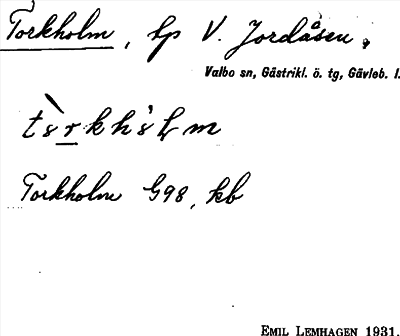 Torkholm, lp V. Jordåsen,
Valbo sn, Gästrikl. ö. tg, Gävleb. l.
Torkholm G98, kb
EMIL LEMHAGEN 1931.